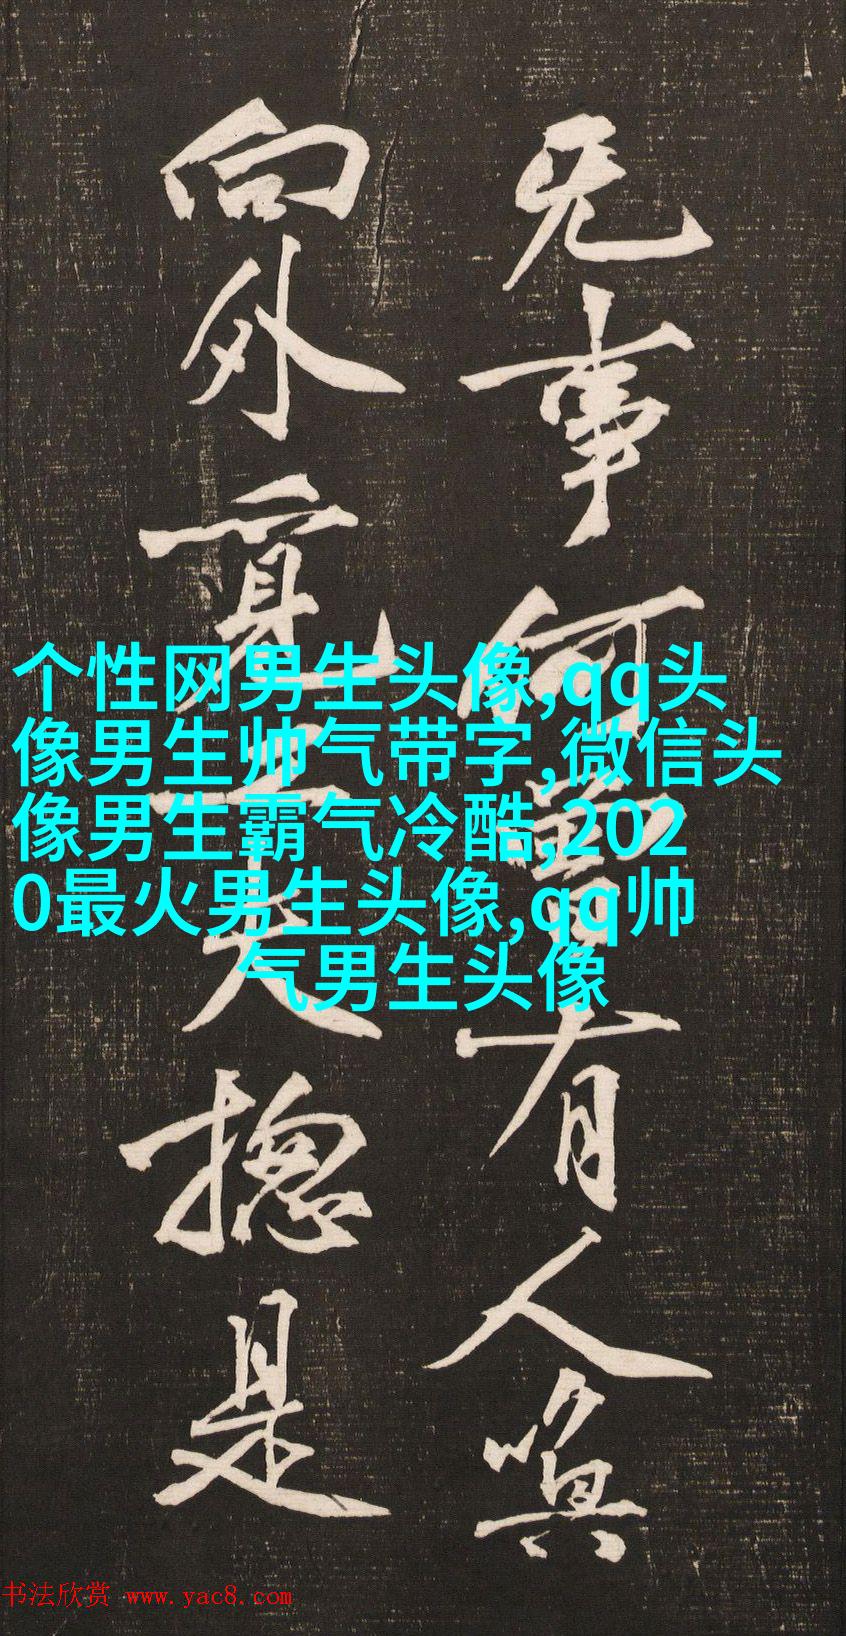 无事何曾有人嗔
向外覔工夫揔是
个性网男生头像,qq头
像男生帅气带字,微信头
像男生霸气冷酷,202
0最火男生头像,qq帅
气男生头像
书法欣赏 www.yac8.com